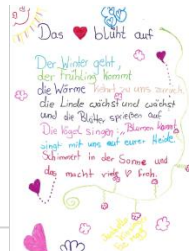 Das ❤ blüht auf
Der Winter geht,
der Frühling kommt
die Wärme kehrt zu uns zurück
die Linde wächst und wächst
und die Blätter sprießen auf
Die Vögel singen: „Blumen kommt,
singt mit uns auf eurer Heide.
Schimmert in der Sonne und
das macht viele ♡ froh.